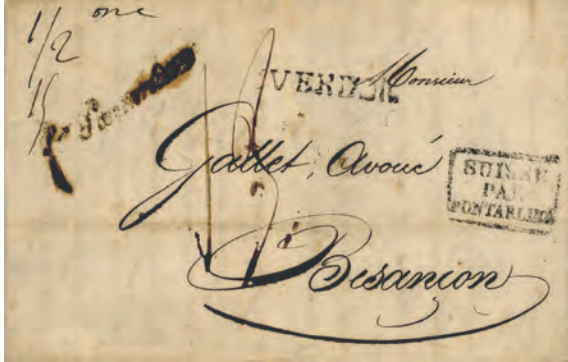 1/2 one
15
VERDUN Monsieur
Gallet, Avoué
SUISSE
PAR
PONTARLIER
Besançon